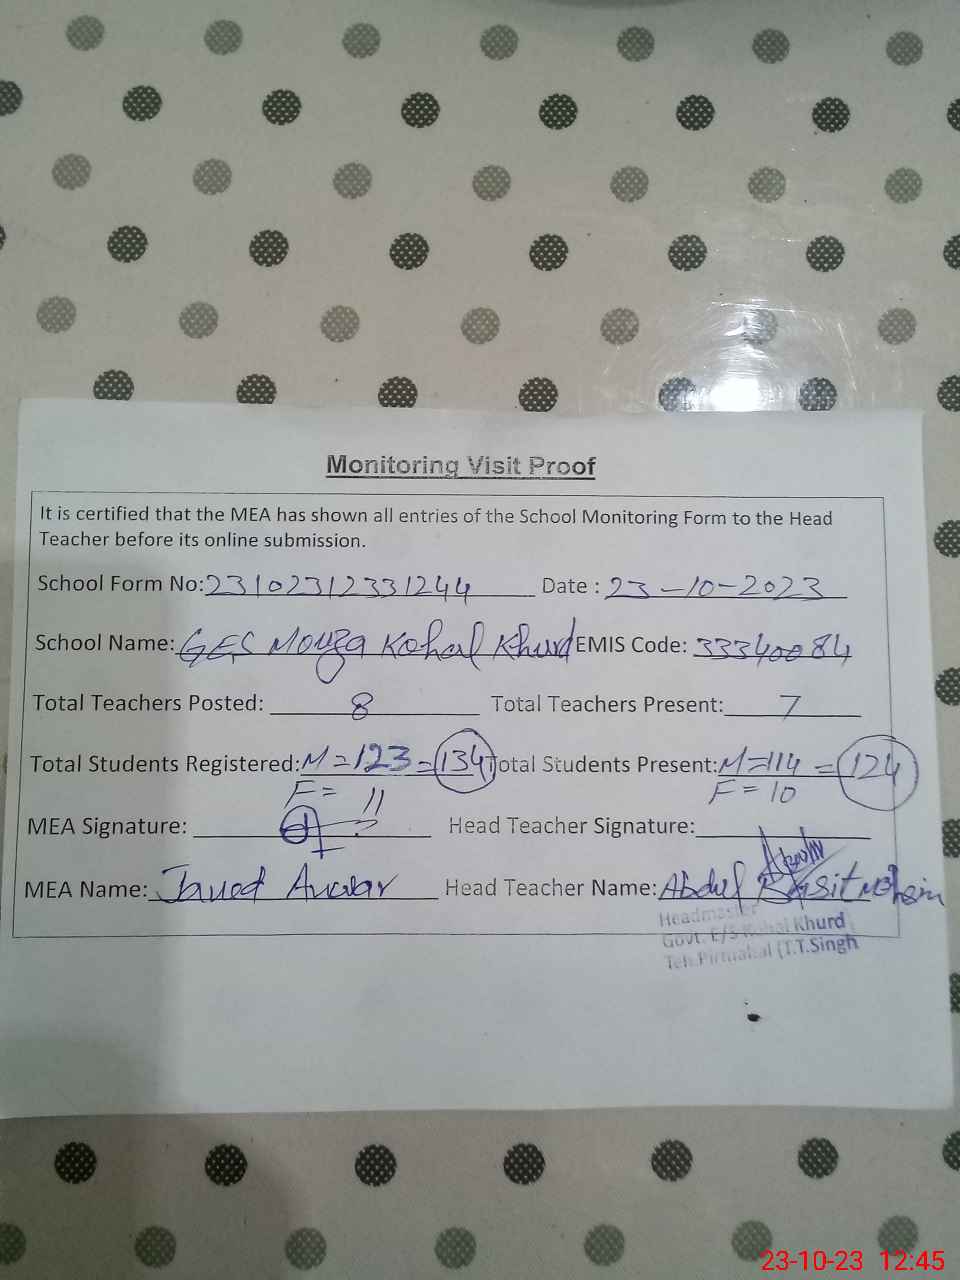 Monitoring Visit Proof
It is certified that the MEA has shown all entries of the School Monitoring Form to the Head
Teacher before its online submission.
School Form No: 23102312331244 Date : 23-10-2023
School Name: GES Mouza Kohal Khurd EMIS Code: 33340084
Total Teachers Posted: 8 Total Teachers Present: 7
Total Students Registered: M=123 = 134 Total Students Present: M=114 = 124
F = 11 F = 10
MEA Signature: Head Teacher Signature:
MEA Name: Javed Anwar Head Teacher Name: Abdul Basit Mohsin
Headmaster
Govt. E/S Kohal Khurd
Teh. Pirmahal (T.T.Singh
23-10-23 12:45